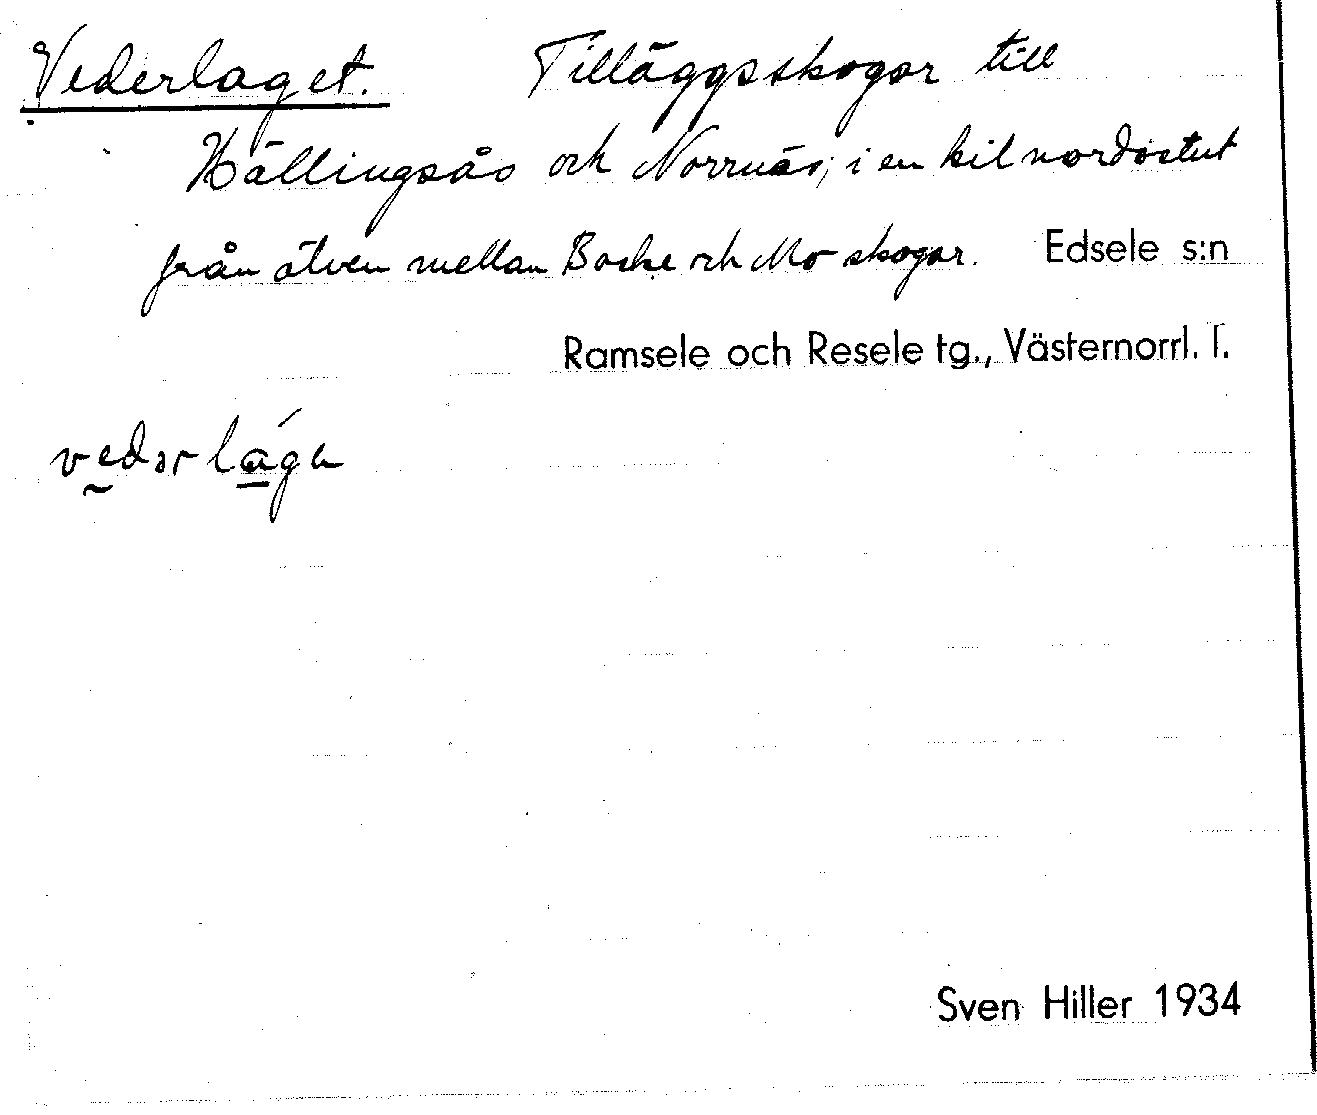 Vederlaget. Tilläggsskogar till
Hällingsås och Norrnäs; i en kil nordostut
från älven mellan Backe och Mo skogar. Edsele s:n
Ramsele och Resele tg., Västernorrl. l.
vedərlága
Sven Hiller 1934